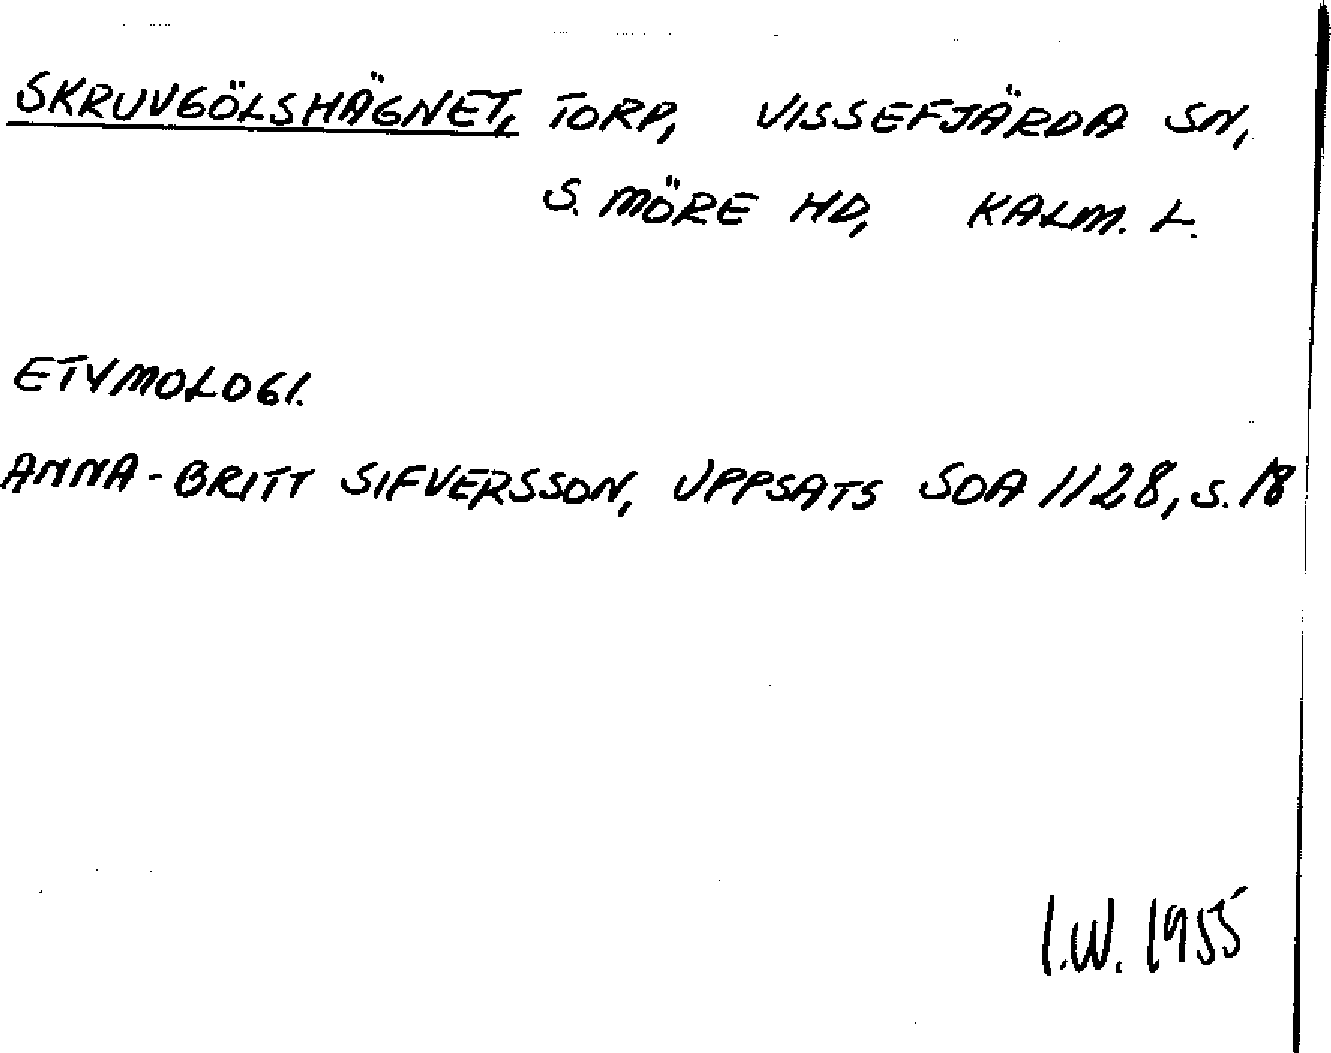 SKRUVGÖLSHÄGNET, TORP, VISSEFJÄRDA SN,
S. MÖRE HD, KALM. L.
ETYMOLOGI.
ANNA-BRITT SIFVERSSON, UPPSATS SOA 1128, S. 18
I.W. 1955